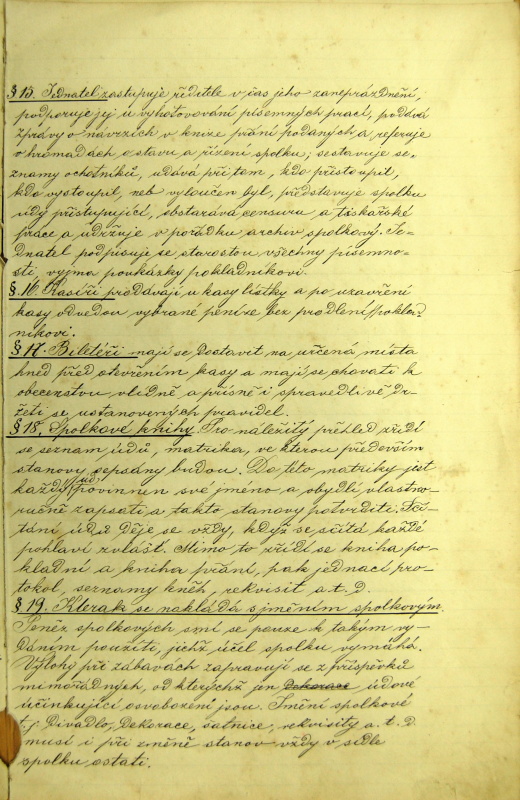 § 15. Jednatel zastupuje ředitele v čas jeho zaneprázdnění,
podporuje jej u vyhotovování písemných prací, podává
zprávy o návrzích v knize přání podaných a referuje
v hromadách o stavu a řízení spolku, sestavuje se-
znamy ochotníků, udává při tom, kdo přistoupil,
kdo vystoupil, neb vyloučen byl, představuje spolku
údy přistupující, obstarává censuru a tiskařské
práce a udržuje v pořádku archiv spolkový. Je-
dnatel podpisuje se starostou všechny písemno-
sti, vyjma poukázky pokladníkovi.
§ 16. Kasíři prodávají u kasy lístky a po uzavření
kasy odvedou vybrané peníze bez prodlení poklad-
níkovi.
§ 17. Biletéři mají se dostavit na určená místa
hned před otevřením kasy a mají se chovati k
obecenstvu vlídně a přísně i spravedlivě dr-
žeti se ustanovených pravidel.
§ 18. Spolkové knihy. Pro náležitý přehled zřídí
se seznam údů, matrika, ve kterou především
stanovy sepsány budou. Do této matriky jest
každý úd povinnen své jméno a obydlí vlastno-
ručně zapsati a takto stanovy potvrditi. Sčí-
tání údů děje se vždy, když se sčítá každé
pohlaví zvlášť. Mimo to zřídí se kniha po-
kladní a kniha přání, pak jednací pro-
tokol, seznamy kněh, rekvisit a t. d.
§ 19. Kterak se nakládá s jměním spolkovým.
Peněz spolkových smí se pouze k takým vy-
dáním použíti, jichž účel spolku vymáhá.
Výlohy při zábavách zapravují se z příspěvků
mimořádných, od kterýchž jen dekorace údové
účinkující osvobozeni jsou. Jmění spolkové
t. j. Divadlo, Dekorace, šatnice, rekvisity a. t. d.
musí i při změně stanov vždy v sídle
spolku ostati.